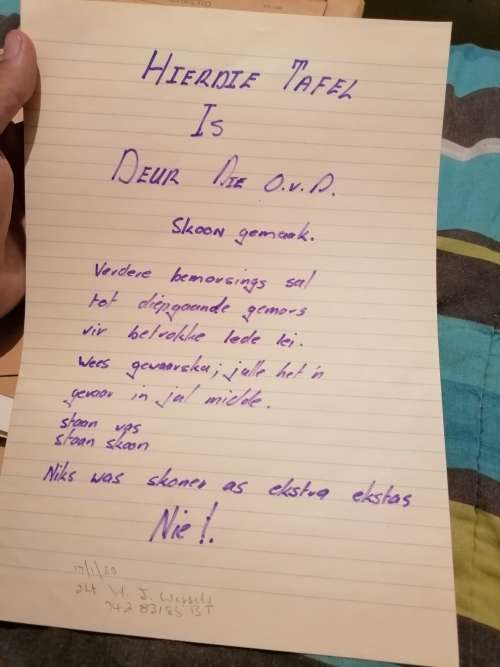 HIERDIE TAFEL
IS
DEUR DIE O.v.D.
SKOON gemaak.
Verdere bemorsings sal
tot diepgaande gemors
vir betrokke lede lei.
Wees gewaarsku; julle het 'n
gevaar in jul midde.
staan vas
staan skoon
Niks was skoner as ekstra ekstas
Nie!.
17/1/80
24t H. J. Wessels